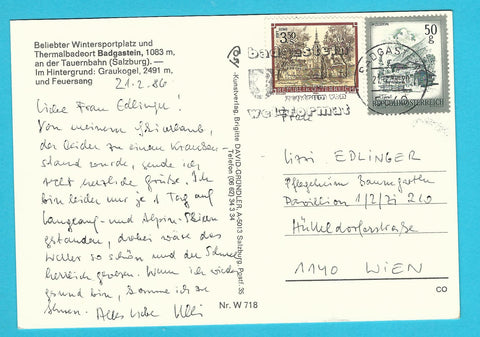 Beliebter Wintersportplatz und
Thermalbadeort Badgastein, 1083 m,
an der Tauernbahn (Salzburg). —
Im Hintergrund: Graukogel, 2491 m,
und Feuersang
21.2.86
Liebe Frau Edlinger!
Von meinem Schiurlaub,
der leider zu einem Kranken-
stand wurde, sende ich
recht herzliche Grüße. Ich
bin leider nur je 1 Tag auf
Langlauf- und Alpin-Skiern
gestanden, dabei wäre das
Wetter so schön und der Schnee
herrlich gewesen. Wenn ich wieder
gesund bin, komme ich Sie
Alles Liebe
Kunstverlag Brigitte DAVID-GRÜNDLER, A-5013 Salzburg, Pgstf. 35
Telefon (06 62) 34 3 34
Nr. W 718
badgastein
weltformat
3.50
REPUBLIK ÖSTERREICH
50
g
REPUBLIK ÖSTERREICH
BADGAST
Frau
EDLINGER
Pflegeheim Baumgarten
Pavillon 210
Hütteldorferstraße
1140 WIEN
CO